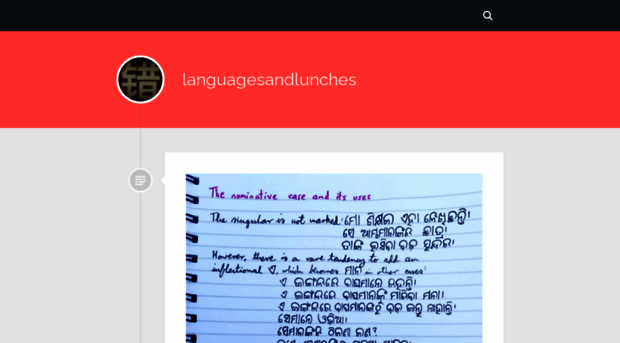 错
languagesandlunches
The nominative case and its uses
The singular is not marked: ମୋ ଶିକ୍ଷକ ଏହା ଲେଖିଛନ୍ତି!
ସେ ଆମମାନଙ୍କର ଛାତ୍ର!
ତାଙ୍କ ହସିବା ବଡ଼ ସୁନ୍ଦର!
However, there is a rare tendency to add an
inflectional ଏ, which becomes ମାନ in other cases:
ଏ ଜଙ୍ଗଲରେ ବାଘମାନେ ରହନ୍ତି!
ଏ ଜଙ୍ଗଲରେ ବାଘମାନଙ୍କୁ ମାରିବା ମନା!
ଏ ଜଙ୍ଗଲରେ ବାଘମାନଙ୍କଠୁ ବଡ଼ ଜନ୍ତୁ ନାହାନ୍ତି!
ସେମାନେ ଓଡ଼ିଆ!
ସେମାନଙ୍କର ଠିକଣା କଣ?